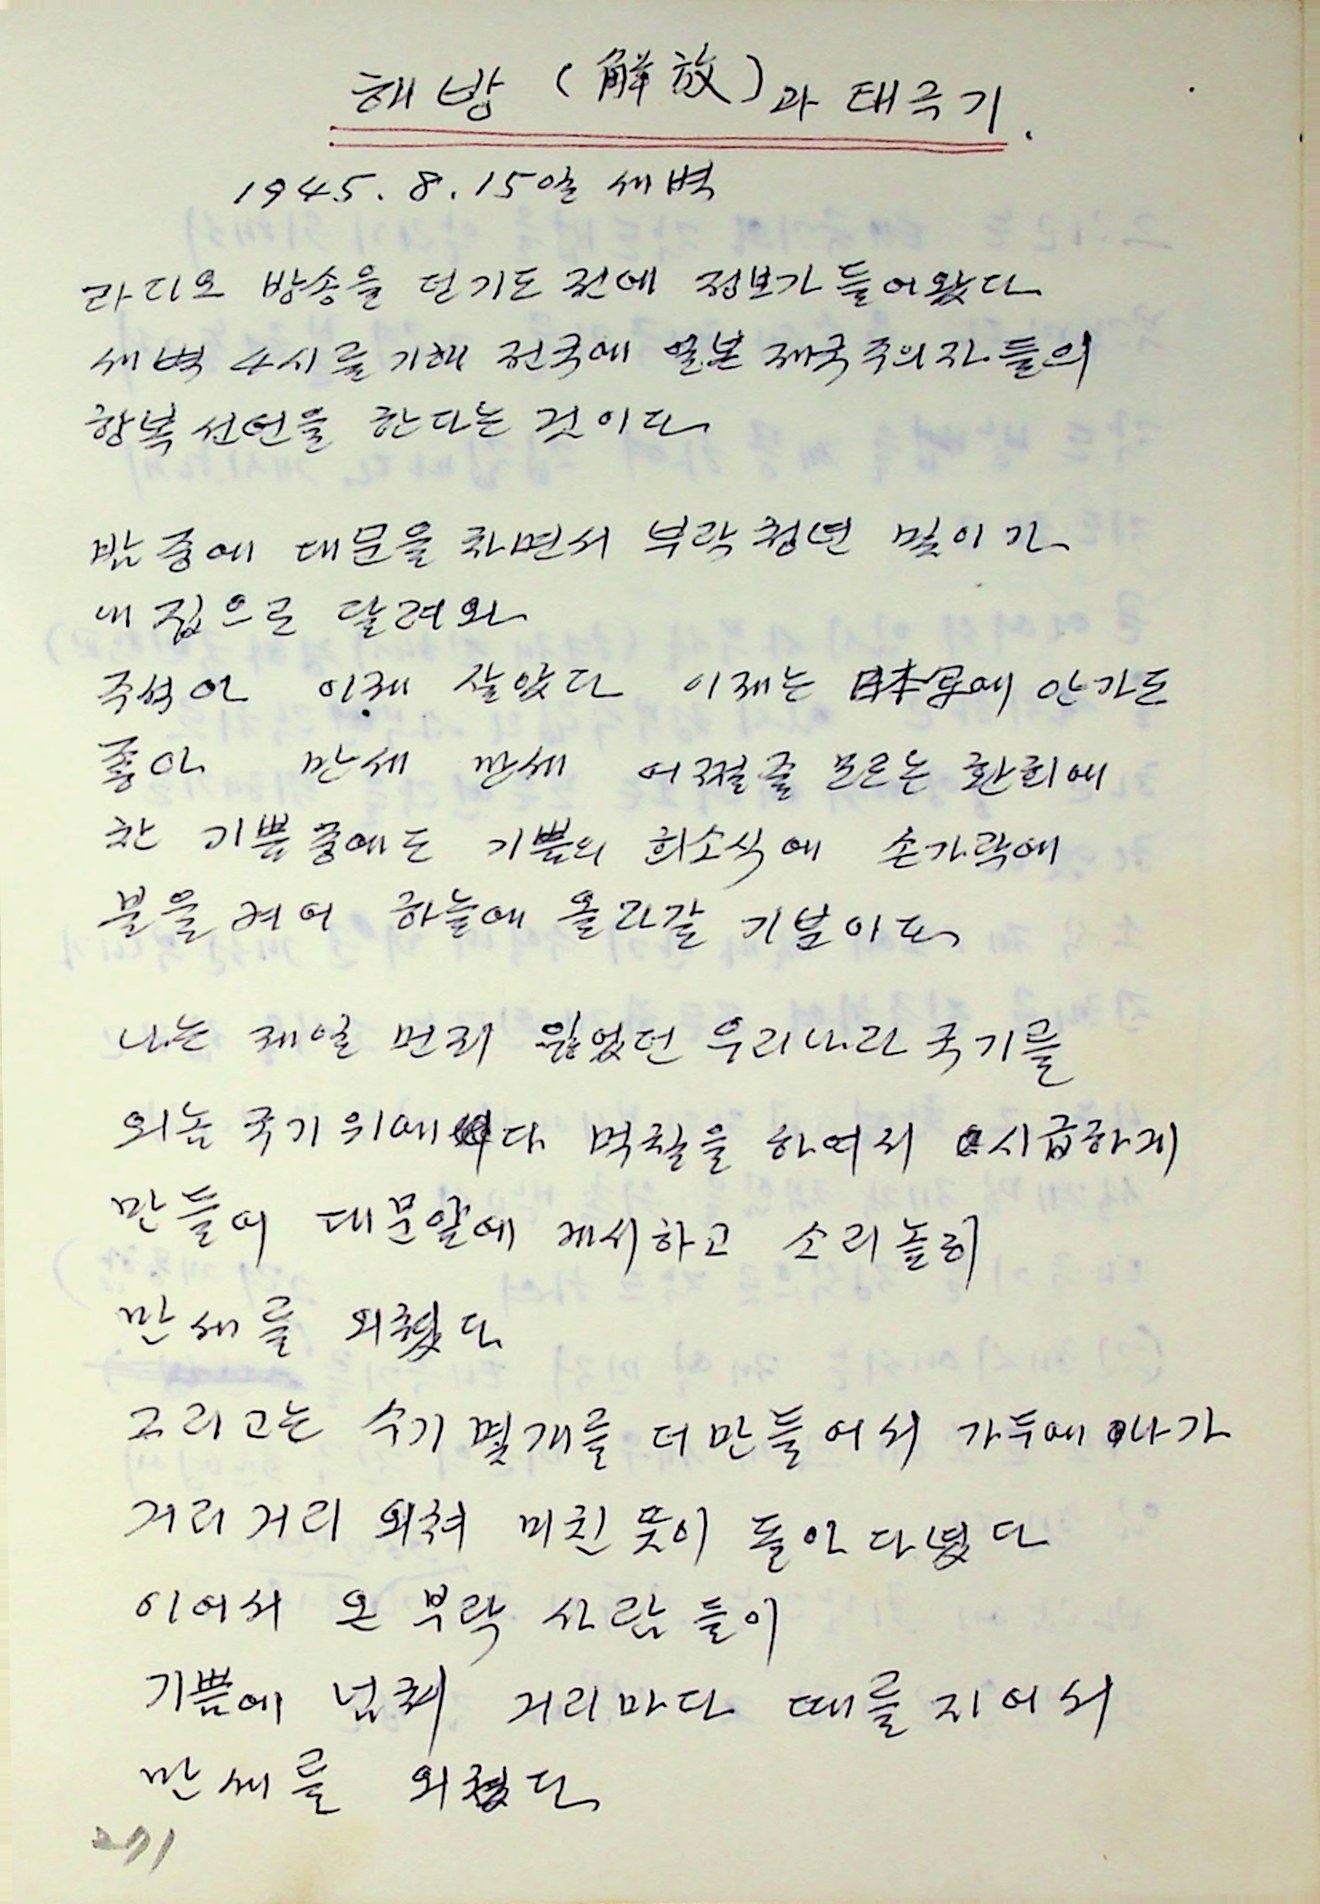 해방 (解放)과 태극기.
1945. 8. 15일 새벽
라디오 방송을 듣기도 전에 정보가 들어왔다
새벽 4시를 기해 전국에 일본 재국주의자들의
항복선언을 한다는 것이다
밤중에 대문을 차면서 부락청년 몇이가
내집으로 달려와
주석아 이젠 살았다 이제는 日本군에 안가도
좋아 만세 만세 어쩔줄 모르는 환희에
찬 기쁨중에도 기쁨의 희소식에 손가락에
불을 켜어 하늘에 올라갈 기분이다
나는 제일 먼저 잃었던 우리나라 국기를
외놈 국기위에다 먹칠을 하여서 시급하게
만들어 대문앞에 게시하고 소리높히
만세를 외쳤다
그리고는 수기 몇개를 더만들어서 가두에 나가
거리거리 외쳐 미친듯이 돌아다녔다
이어서 온 부락 사람들이
기쁨에 넘쳐 거리마다 때를지어서
만세를 외쳤다
271